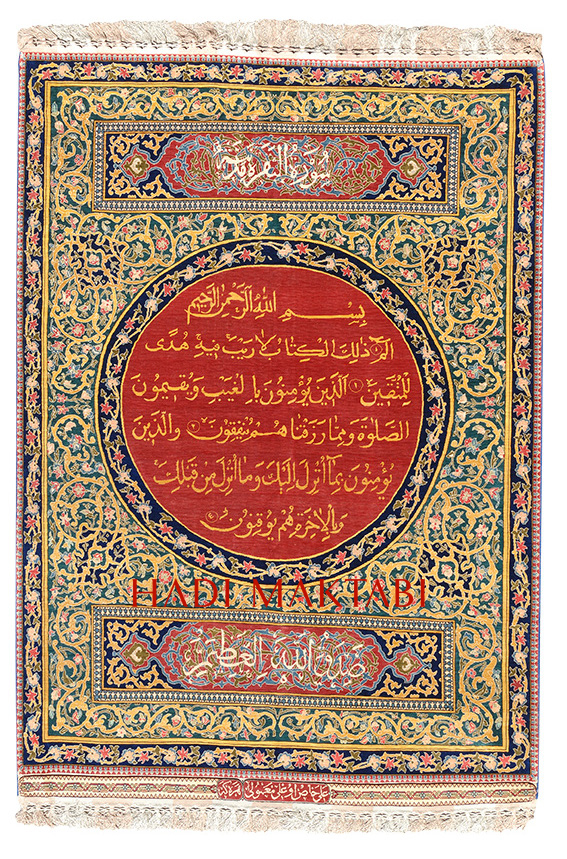 سورة البقرة مدنية
بسم الله الرحمن الرحيم
الم ذلك الكتاب لا ريب فيه هدى
للمتقين ١ الذين يؤمنون بالغيب ويقيمون
الصلوة ومما رزقناهم ينفقون ٢ والذين
يؤمنون بما أنزل إليك وما أنزل من قبلك
وبالآخرة هم يوقنون
HADI MAKTABI
صدق الله العظيم